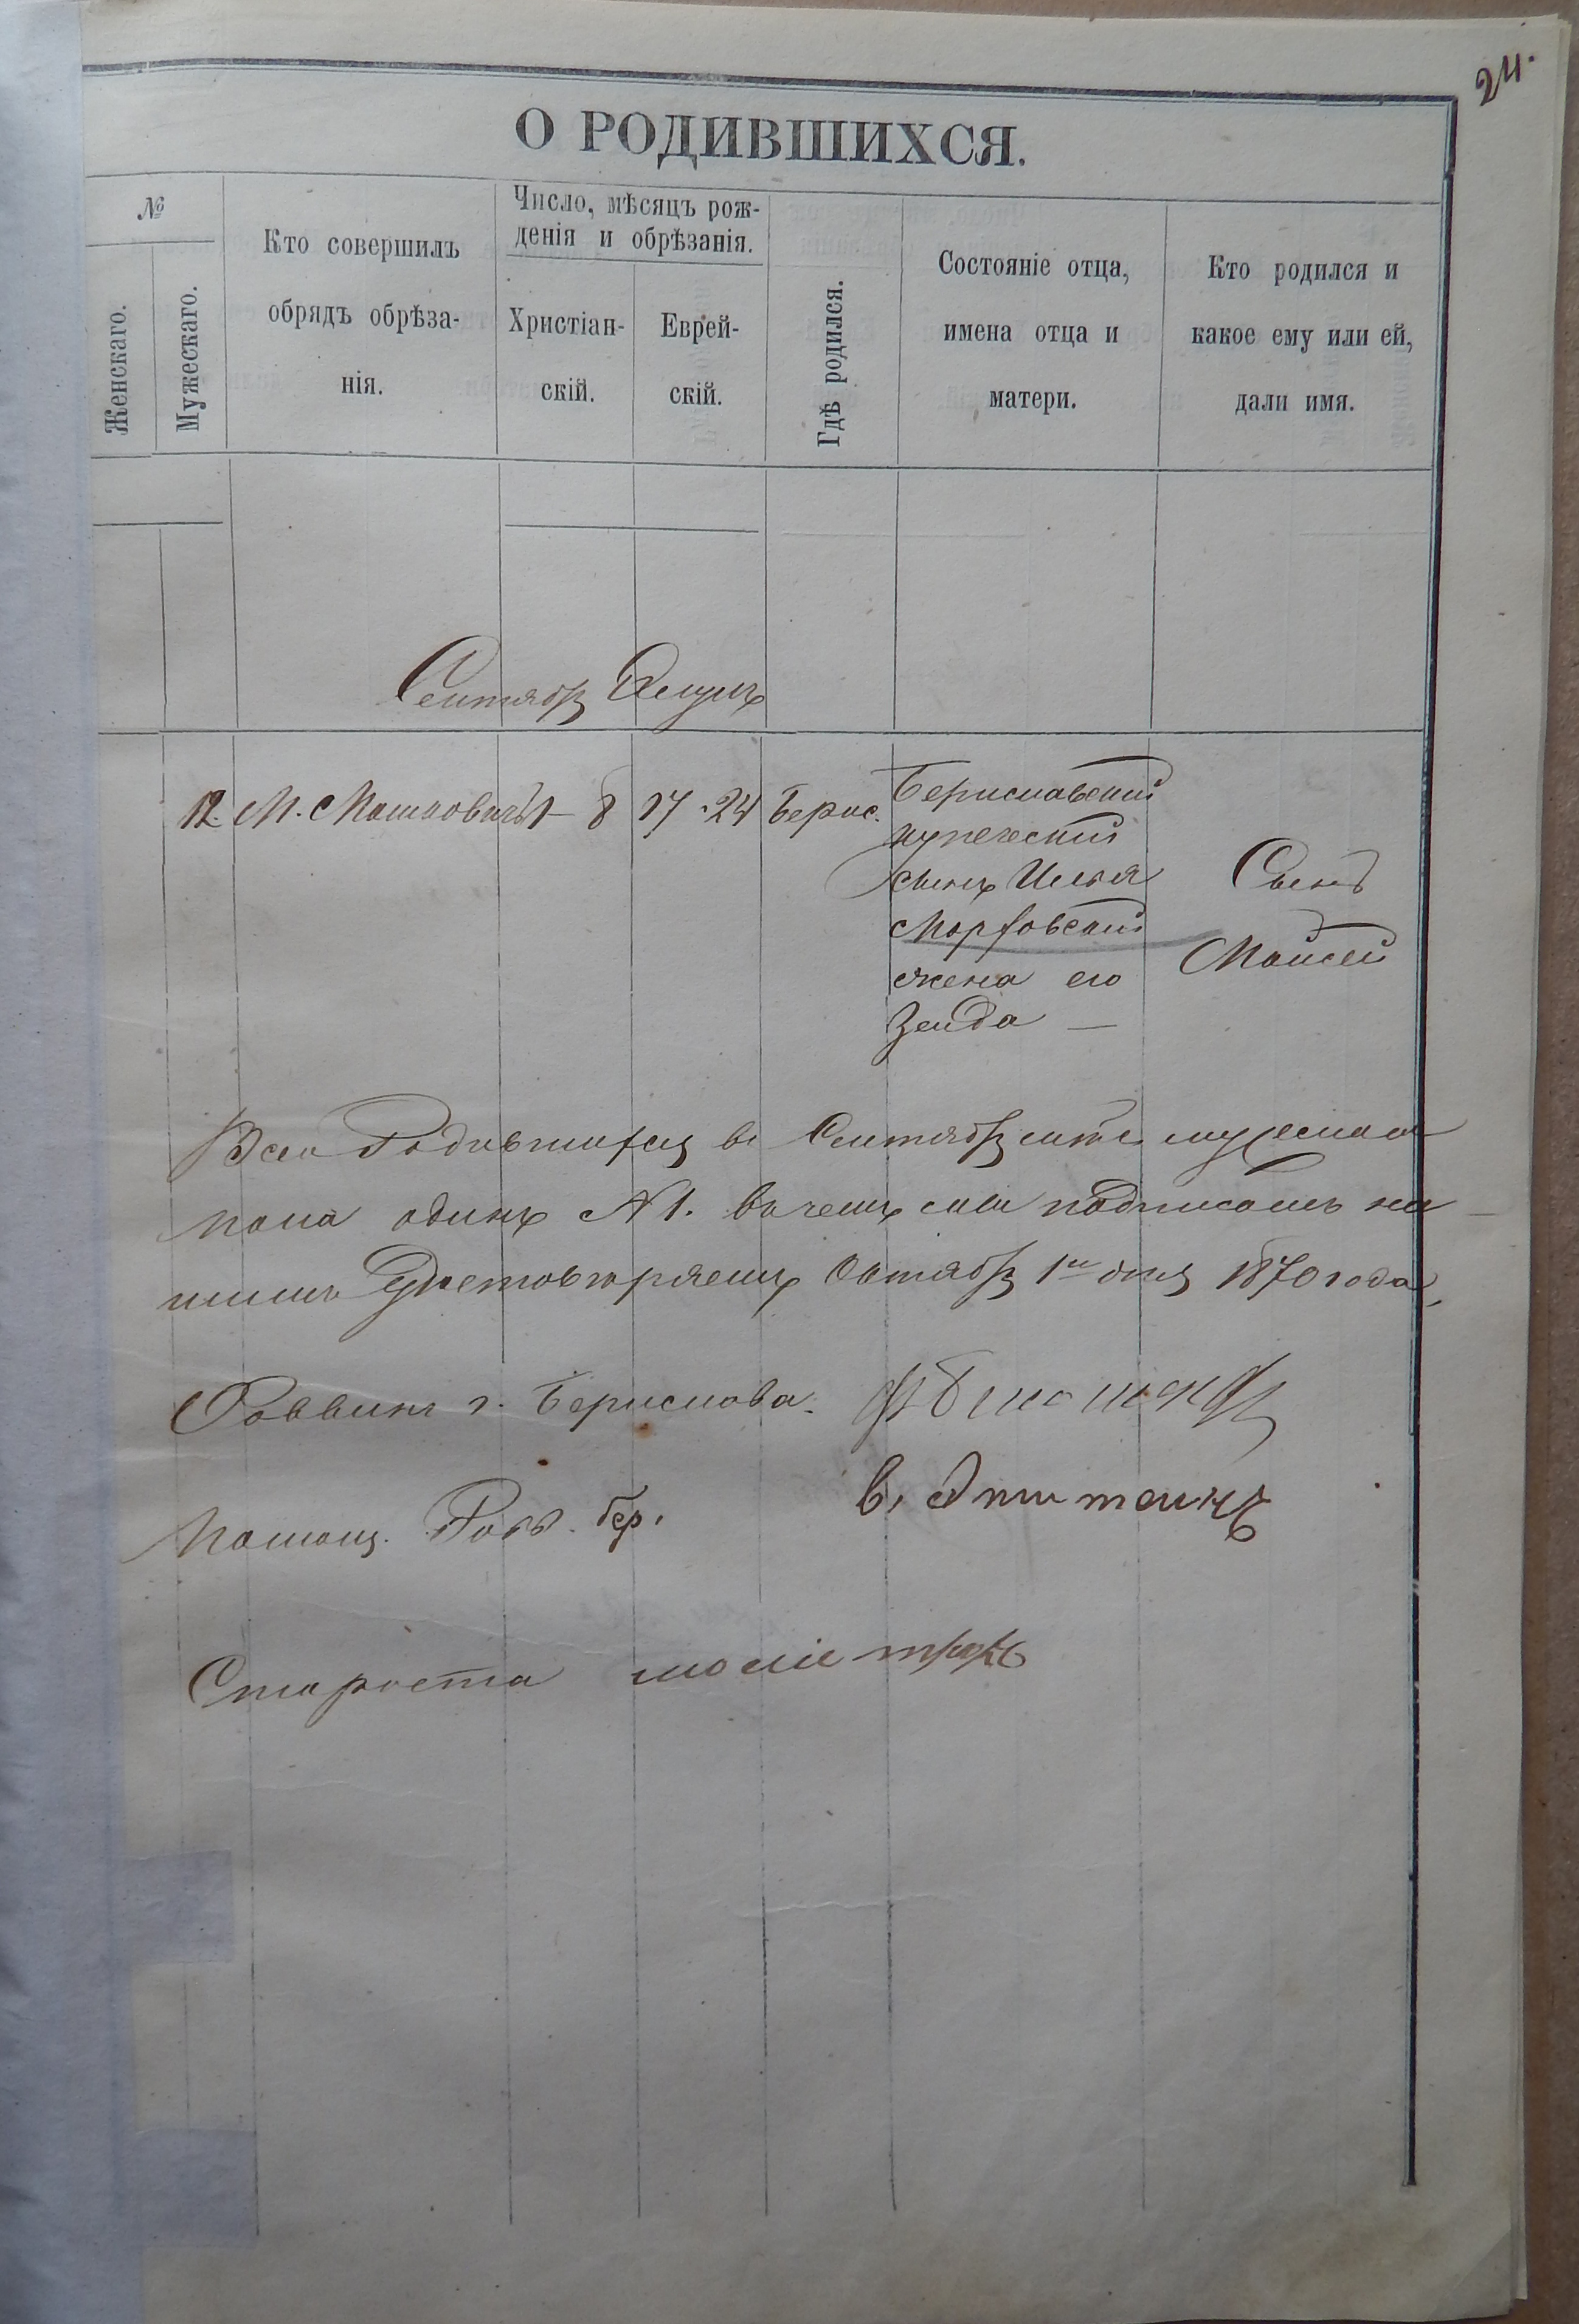 24.
О РОДИВШИХСЯ.
№
Женскаго.
Мужескаго.
Кто совершилъ
обрядъ обрѣза-
нія.
Число, мѣсяцъ рож-
денія и обрѣзанія.
Христіан-
скій.
Еврей-
скій.
Гдѣ родился.
Состояніе отца,
имена отца и
матери.
Кто родился и
какое ему или ей,
дали имя.
Сентябрь Элулъ
12. М. Машковичъ 1 - 8 17 - 24 Берис.
Бериславскій
купеческій
сынъ Илья
Морховскій
жена его
Зелда —
Сынъ
Мойсей
Всего Родившихся въ Сентябрѣ мужеска
пола одинъ № 1. въ чемъ подписомъ на
шимъ Удостовѣряемъ Октября 1го дня 1870 года
Раввинъ г. Берислава.
Помощ. Равв. бер. В. Эпштейнъ
Староста